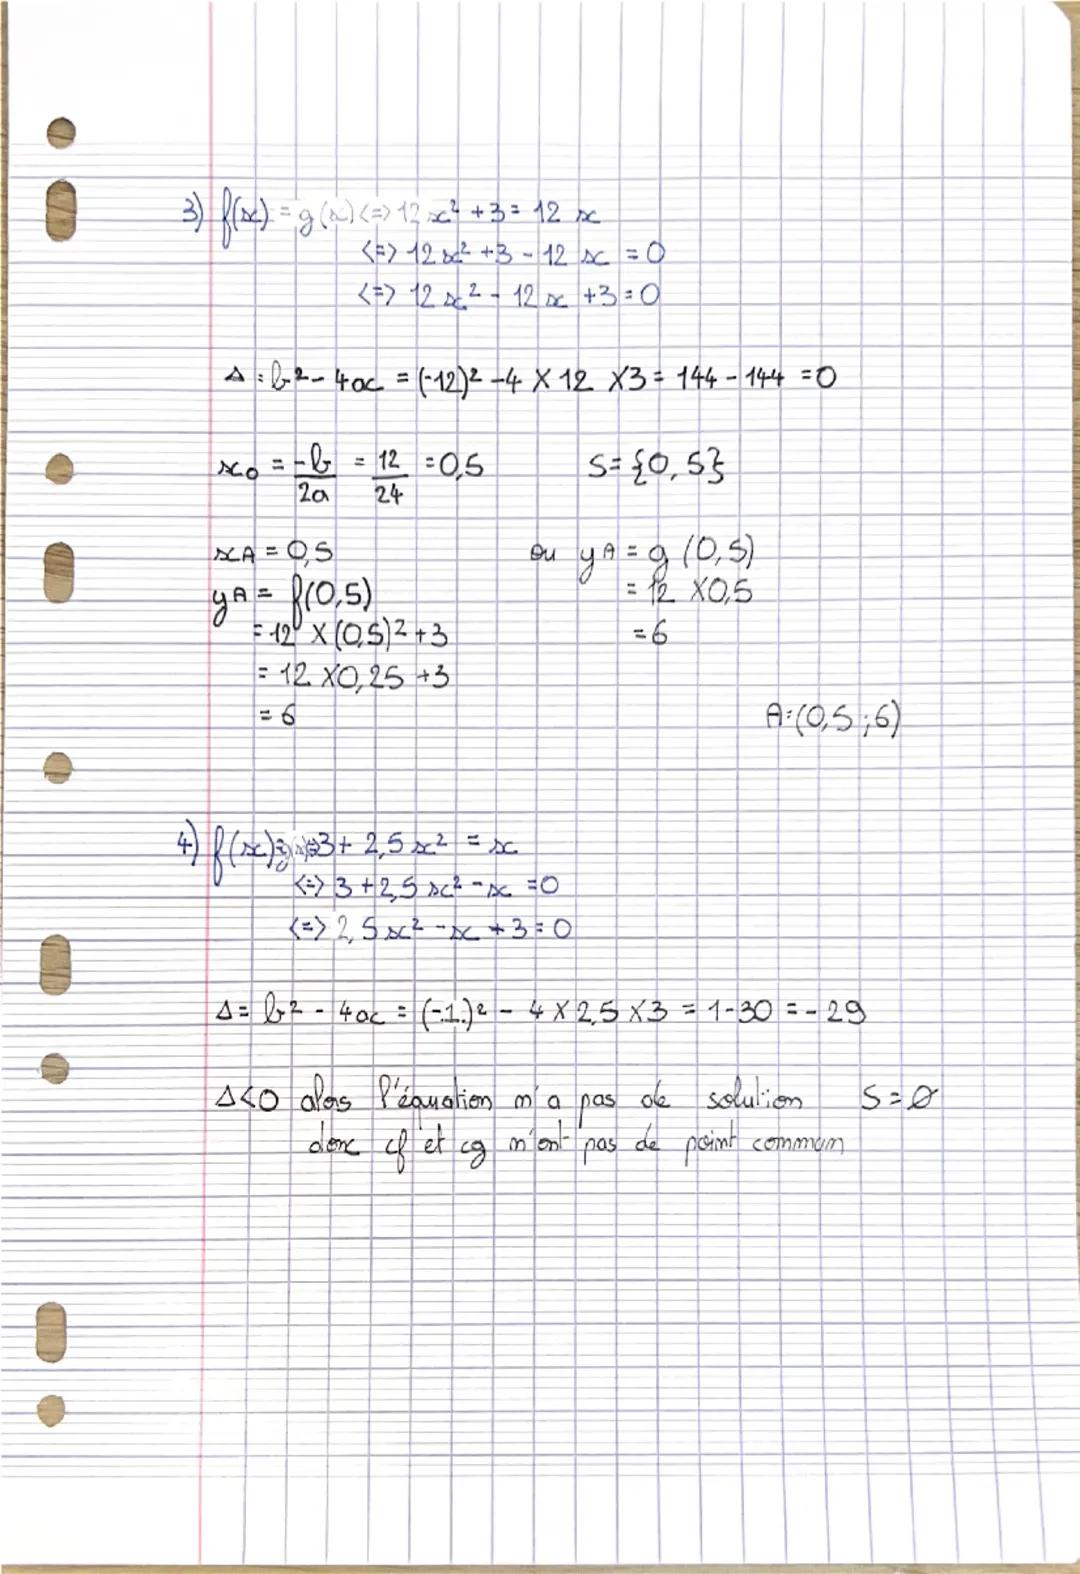 3) f(x) = g(x) <=> 12x² + 3 = 12x
<=> 12x² + 3 - 12x = 0
<=> 12x² - 12x + 3 = 0
Δ = b² - 4ac = (-12)² - 4 × 12 × 3 = 144 - 144 = 0
x₀ = -b/2a = 12/24 = 0,5 S = {0,5}
xA = 0,5 ou yA = g(0,5)
yA = f(0,5) = 12 × 0,5
= 12 × (0,5)² + 3 = 6
= 12 × 0,25 + 3
= 6 A = (0,5 ; 6)
4) f(x) = g(x) <=> 3 + 2,5x² = x
<=> 3 + 2,5x² - x = 0
<=> 2,5x² - x + 3 = 0
Δ = b² - 4ac = (-1)² - 4 × 2,5 × 3 = 1 - 30 = -29
Δ<0 alors l'équation n'a pas de solution S = ∅
donc cf et cg n'ont pas de point commun